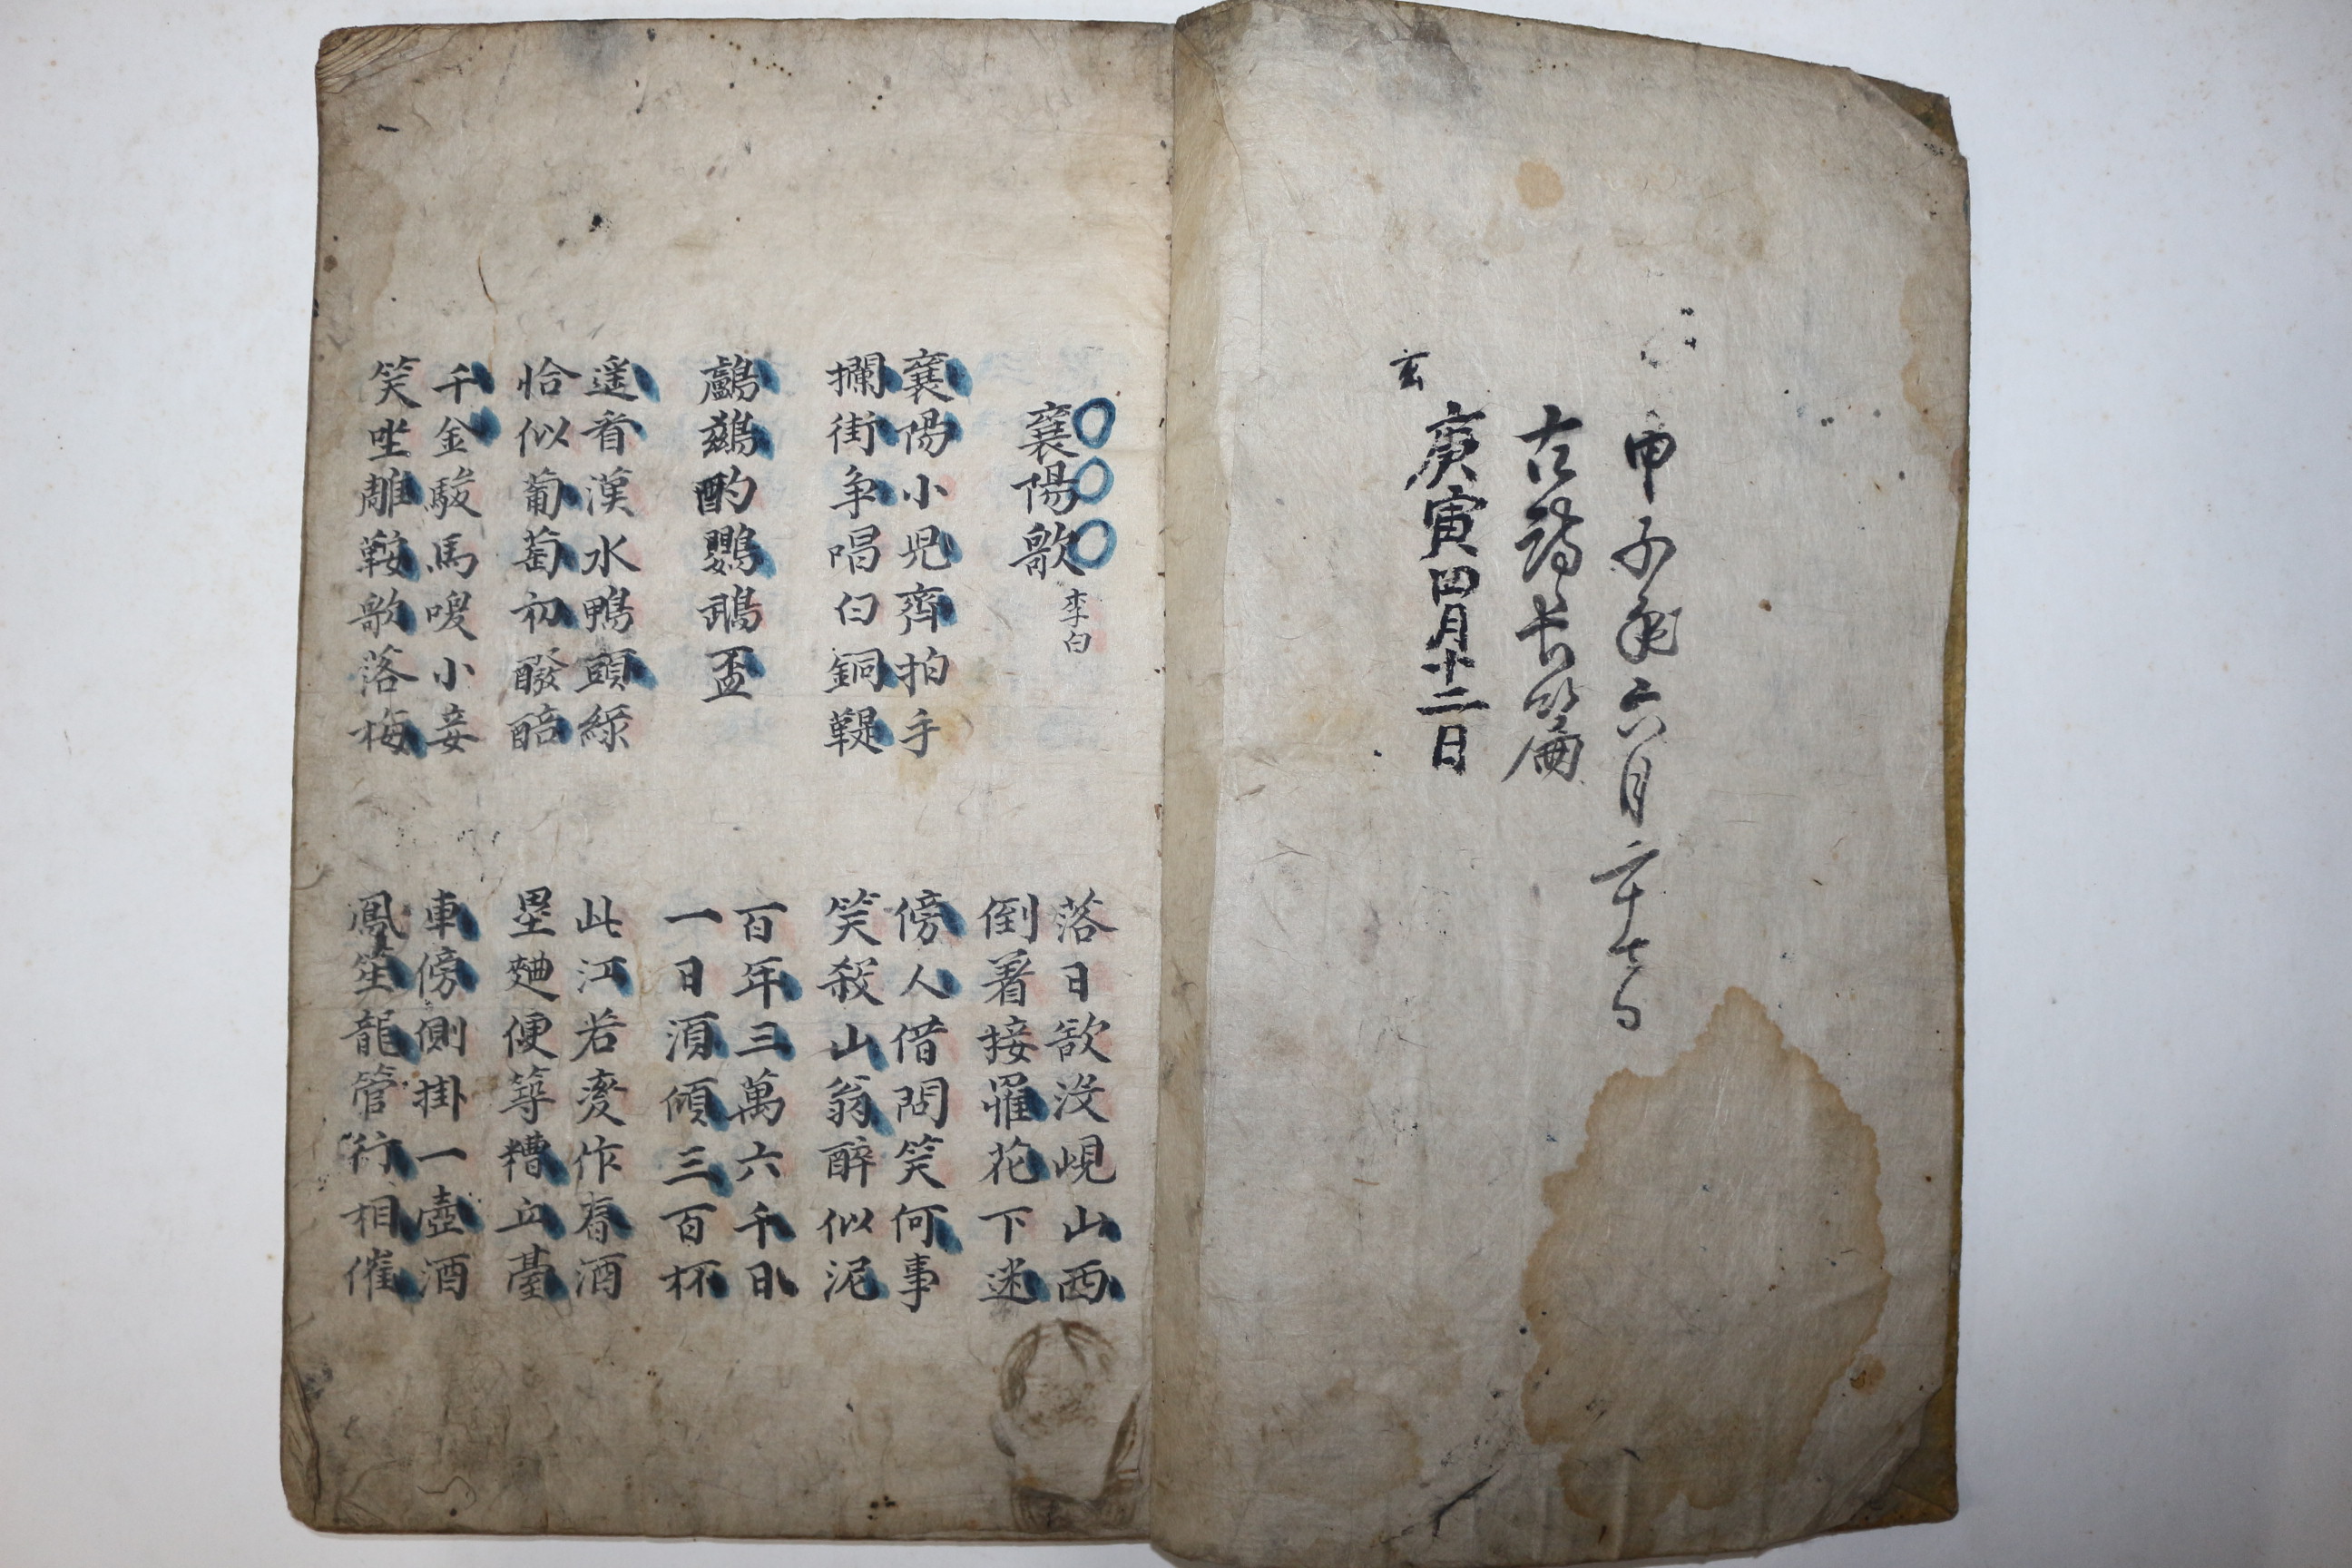 甲子年六月二十七日
古詩長篇
玄
庚寅四月十二日
襄陽歌 李白
落日欲沒峴山西
倒着接罹花下迷
襄陽小児齊拍手
攔街争唱白銅鞮
傍人借問笑何事
笑殺山翁醉似泥
鸕鷀酌鸚鵡盃
百年三萬六千日
一日須傾三百杯
遥看漢水鴨頭綠
恰似葡萄初醱醅
此江若变作春酒
壘麯便築糟丘臺
千金駿馬喚小妾
笑坐雕鞍歌落梅
車傍側掛一壺酒
鳳笙龍管行相催